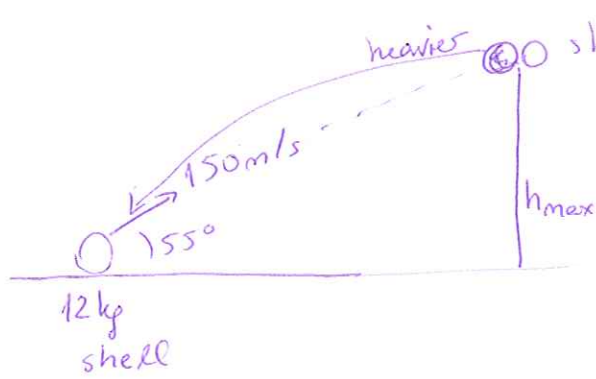 heavier
150m/s
)55°
hmax
12kg
shell